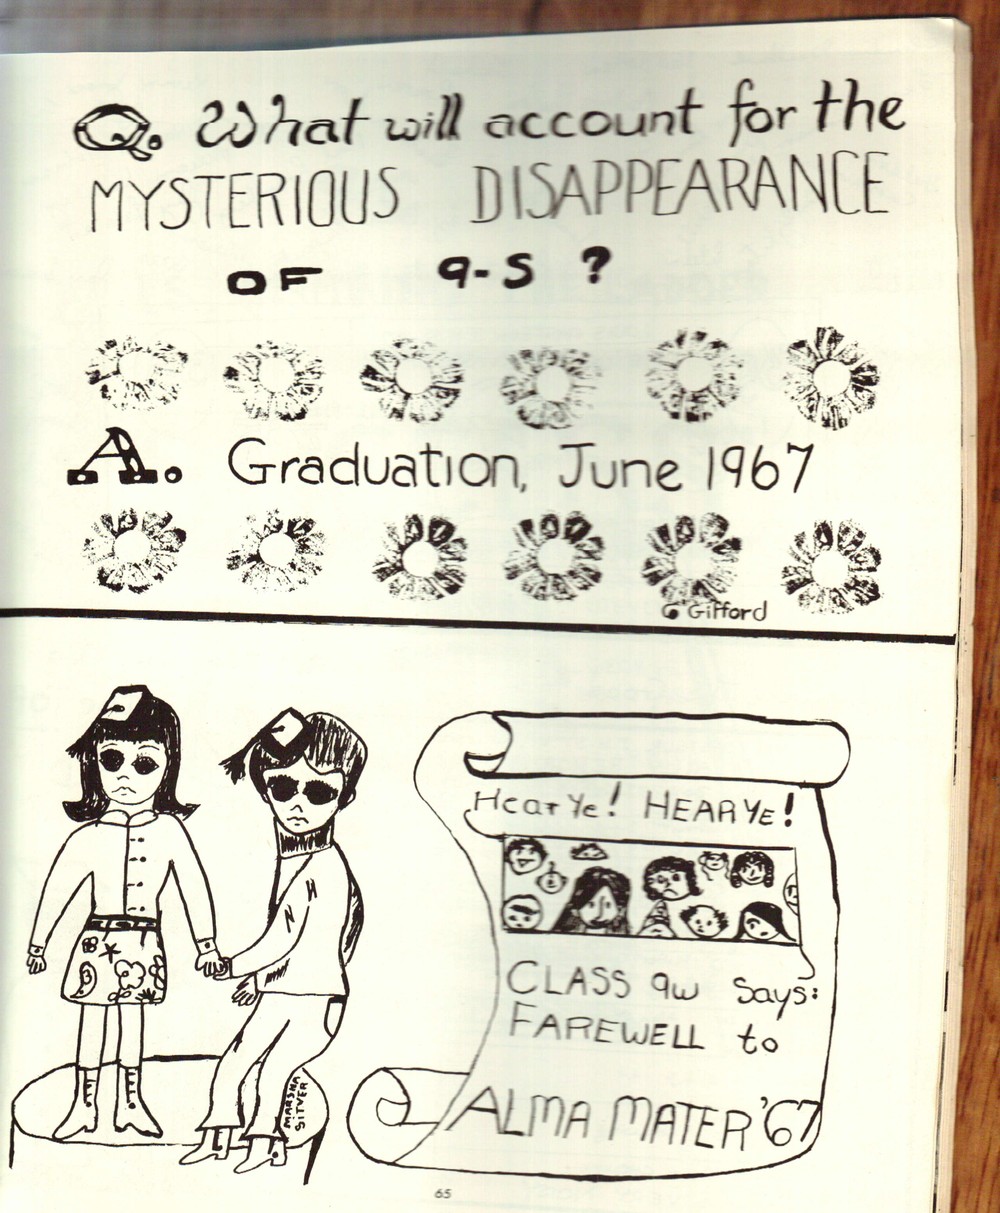 Q. What will account for the
MYSTERIOUS DISAPPEARANCE
OF 9-S ?
A. Graduation, June 1967
G Gifford
Hear Ye! HEAR YE!
CLASS 9W Says:
FAREWELL to
ALMA MATER '67
MARSHA
SITVER
65